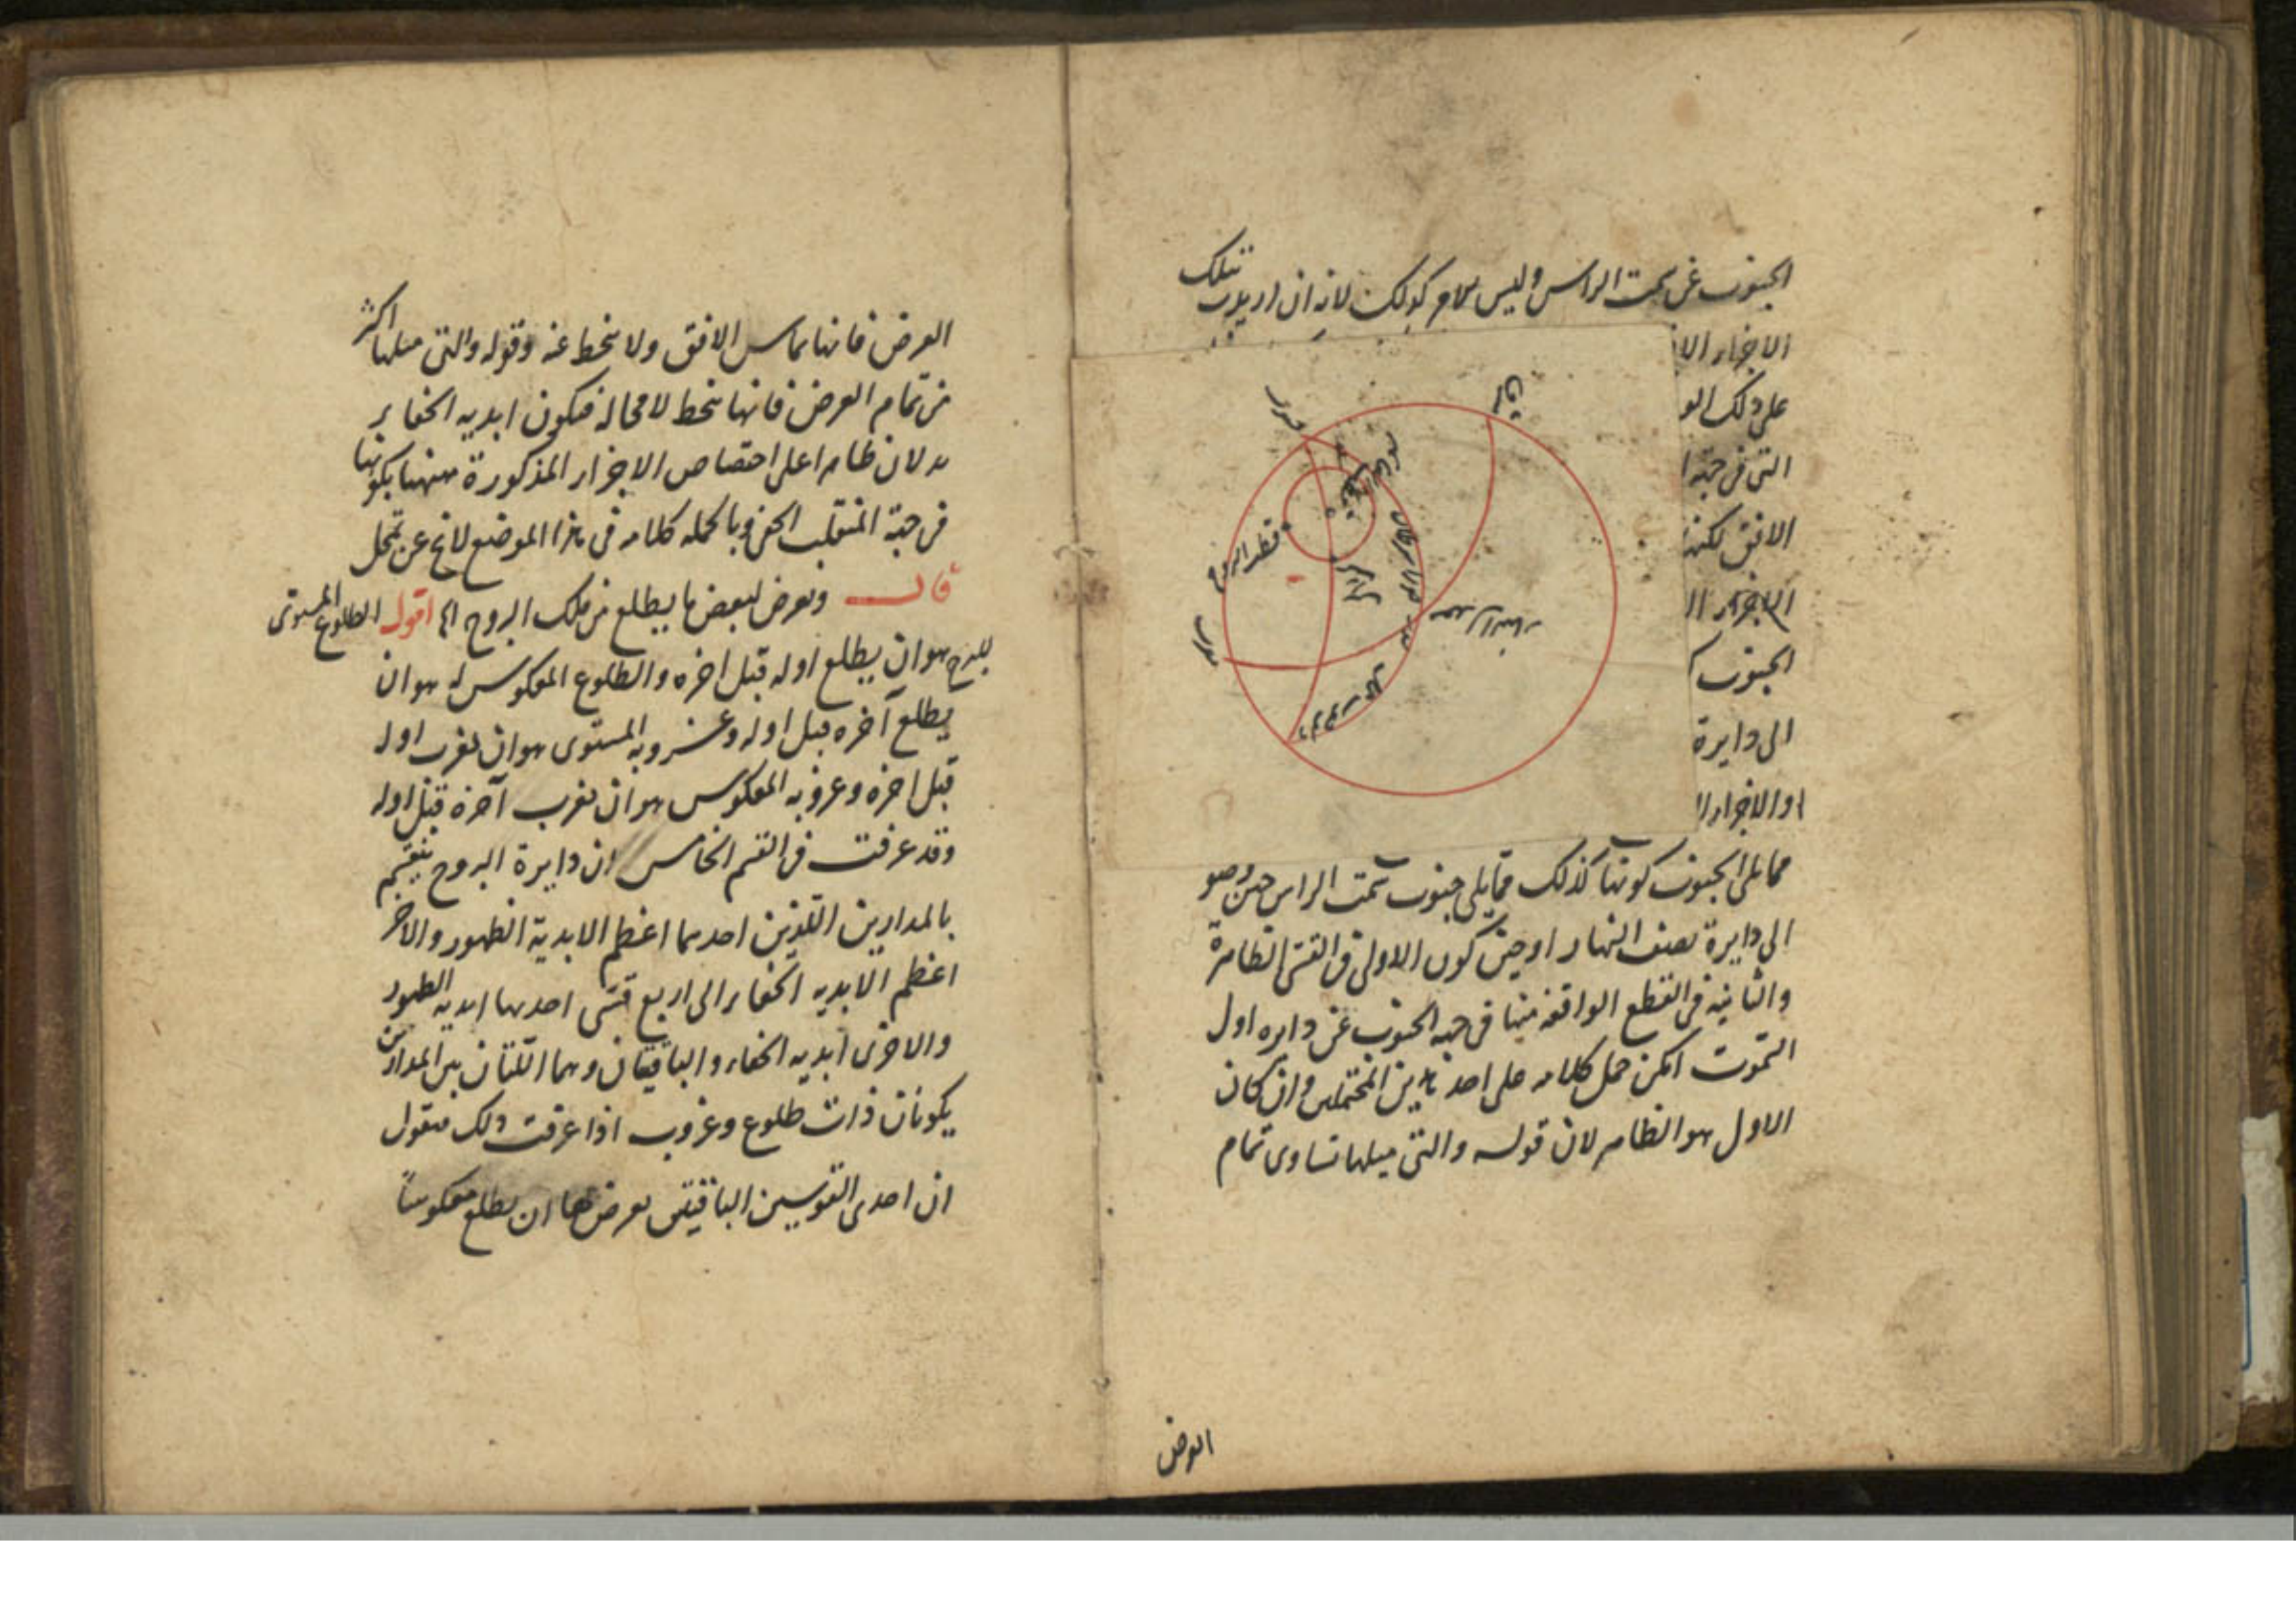 الجنوب عن سمت الراس وليس الامر كذلك لانه ان اريد بتلك
الاجزاء الا
على ذلك الو
التى فى جهة ا
الافق لكنه
الاجزاء ال
الجنوب
الى دايرة
او الاجزاء ا
افق
قطب البروج
مما يلى الجنوب كونها كذلك مما يلى جنوب سمت الراس حين وصو
الى دايرة نصف النهار او حين كون الاولى فى القسى الظاهرة
والثانية فى القطع الواقعة منها فى جهة الجنوب عن دايره اول
السموت امكن حمل كلامه على احد هذين المحتملين وان كان
الاول هو الظاهر لان قوله والتى ميلها تساوى تمام
العرض
العرض فانها تماس الافق ولا ينحط عنه وقوله والتى ميلها اكثر
من تمام العرض فانها ينحط لا محالة فيكون ابديه الخفاء
يدلان ظاهرا على اختصاص الاجزاء المذكورة بكونها
فى جهة المنقلب الخفى وبالجمله كلامه فى هذا الموضع لا يخ عن تمحل
قال ويعرض لبعض ما يطلع من فلك البروج الخ اقول الطلوع المستوى
للبرج هو ان يطلع اوله قبل اخره والطلوع المعكوس له هو ان
يطلع آخره قبل اوله وغروبه المستوى هو ان يغرب اوله
قبل اخره وغروبه المعكوس هو ان يغرب آخره قبل اوله
وقد عرفت فى القسم الخامس ان دايرة البروج ينقسم
بالمدارين اللذين احدهما اعظم الابدية الظهور والاخر
اعظم الابديه الخفاء الى اربع قسى احدها ابديه الظهور
والاخرى ابديه الخفاء والباقيتان وهما اللتان بين المدارين
يكونان ذات طلوع وغروب اذا عرفت ذلك فنقول
ان احدى القوسين الباقيتين يعرض لها ان يطلع معكوسا